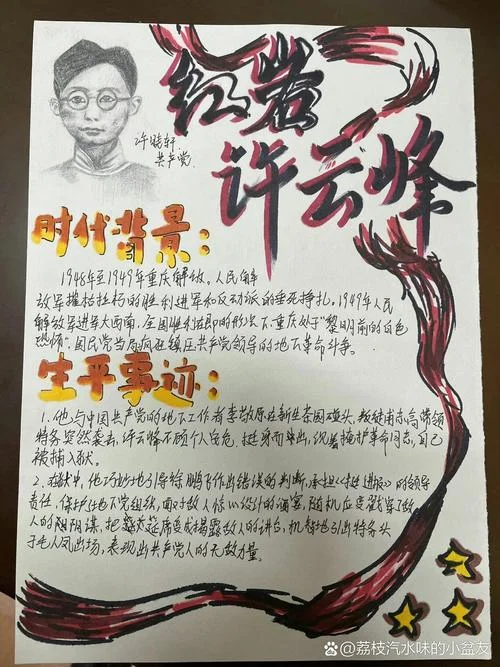 红岩
许云峰
许晓轩
共产党
时代背景:
1948年至1949年重庆解放。人民解
放军摧枯拉朽的胜利进军和反动派的垂死挣扎。1949年人民
解放军进军大西南,全国胜利在即的形次下,重庆处于“黎明前的白色
恐怖”,国民党当局疯狂镇压共产党领导的地下革命斗争。
生平事迹:
1.他与中国共产党的地下工作者李敬原在新生茶园碰头,叛徒甫志高带领
特务突然袭击,许云峰不顾个人安危,挺身而出,沉着掩护革命同志,自己
被捕入狱。
2.在狱中,他巧妙地引导徐鹏飞作出错误的判断,承担《挺进报》的领导
责任,保护住地下党组织,面对敌人惊心设计的酒宴,随机应变戳穿了敌
人的阴谋,把 宴席变成揭露敌人的讲台,机智地引出特务头
子毛人凤出场,表现出共产党人的无敌力量。
百家号@荔枝汽水味的小盆友